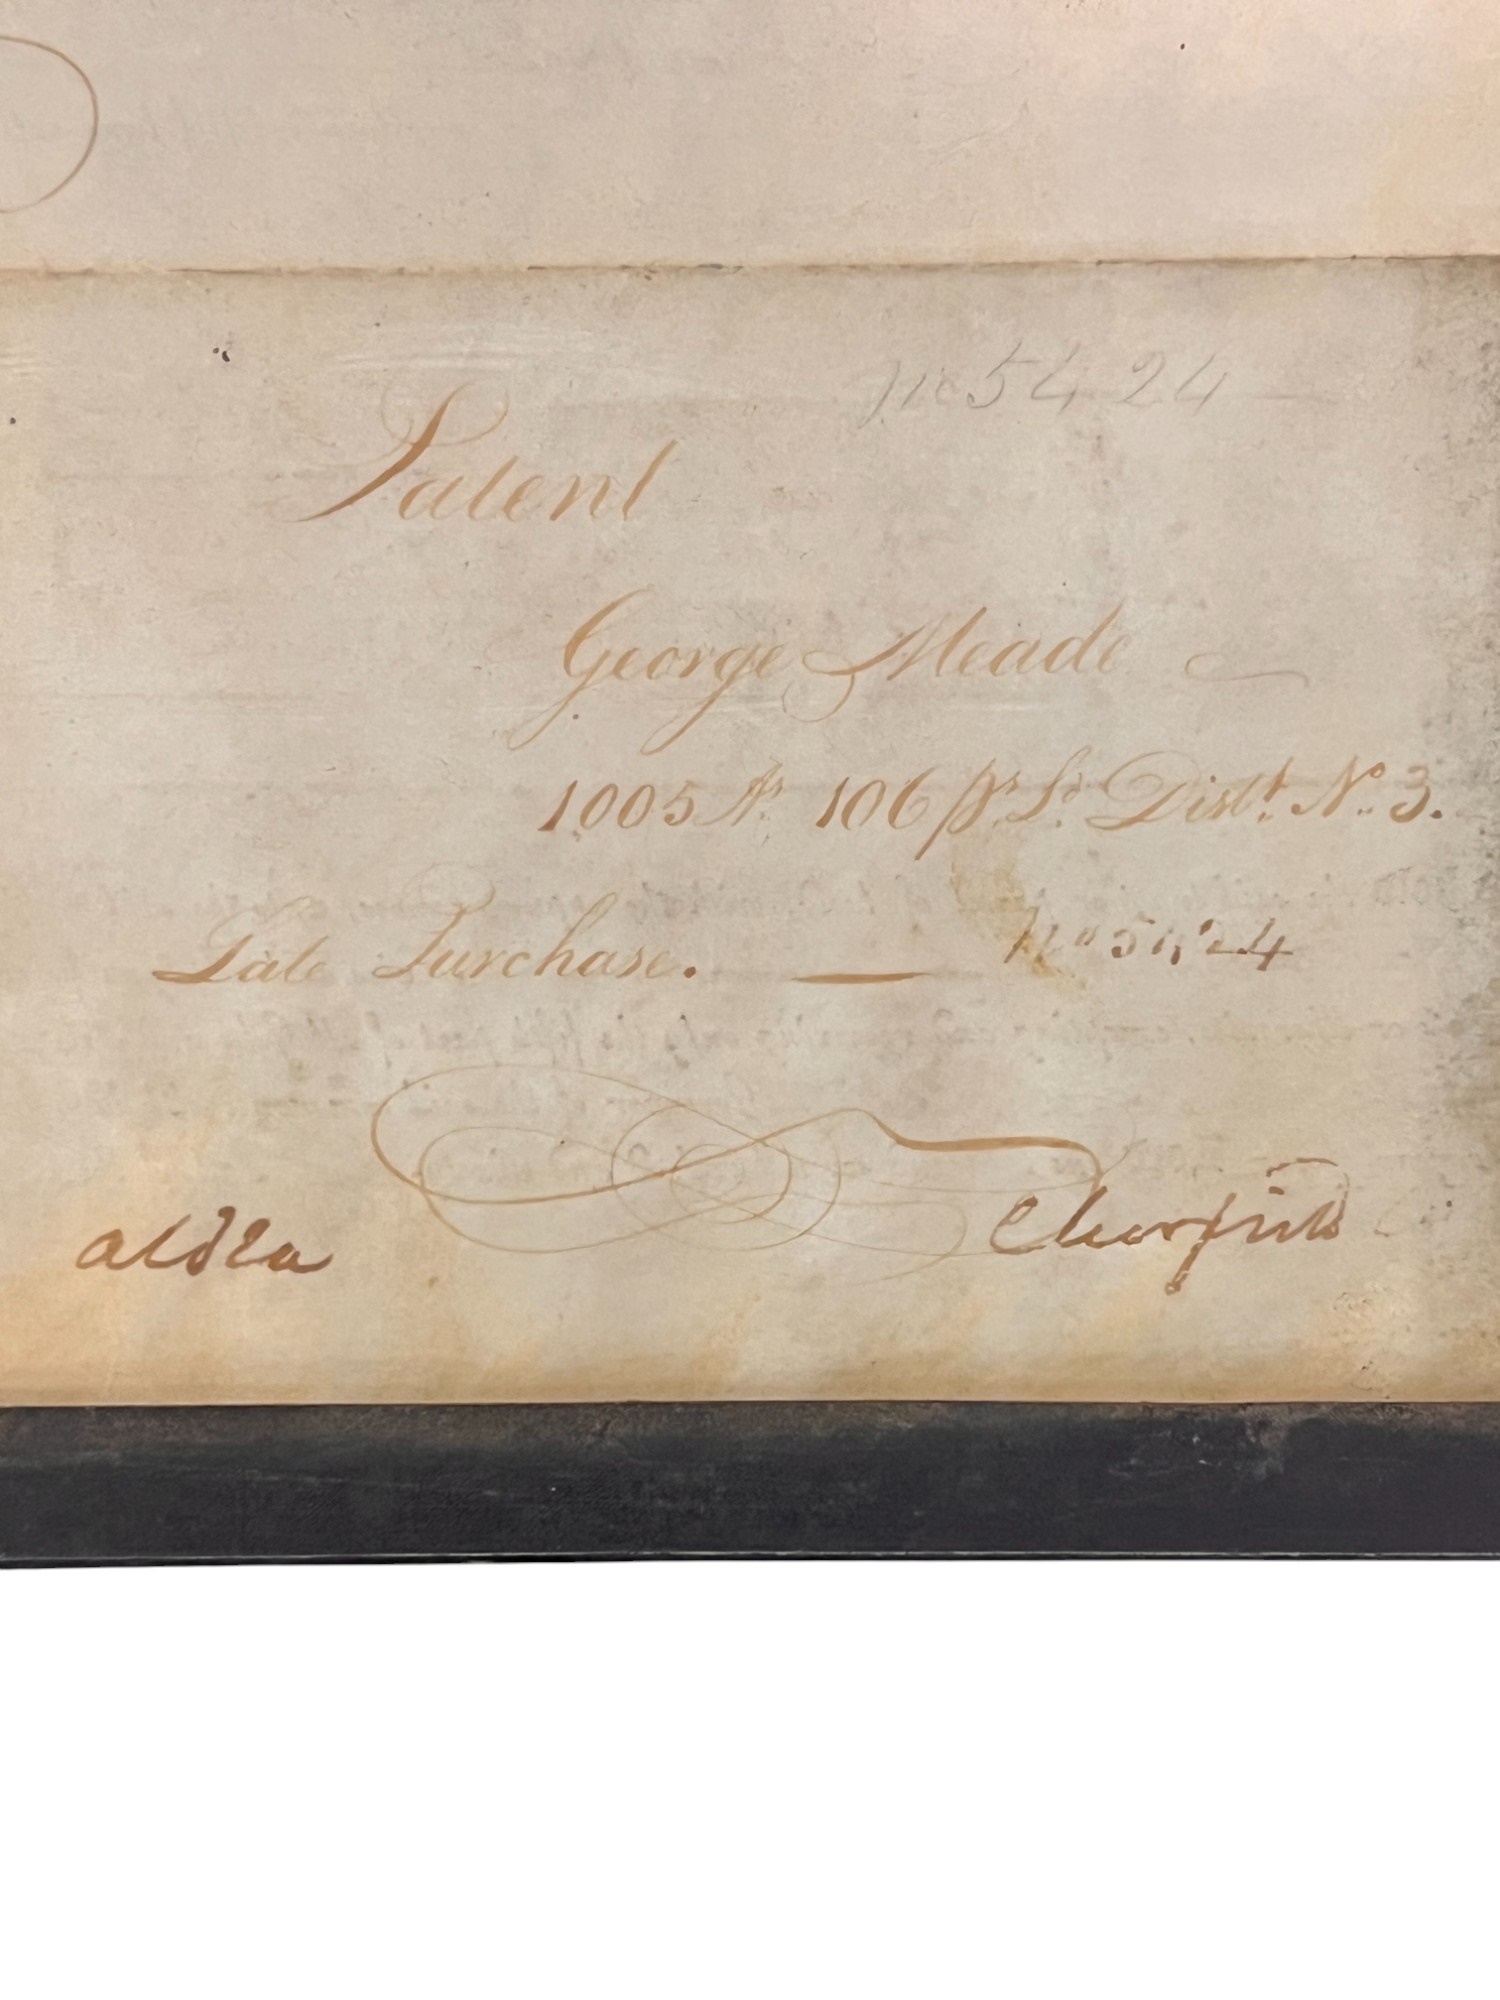 No 5424
Patent
George Meade
1005 As 106 ps Ld Distt. No. 3.
Late Purchase. — No 5424
Clearfield